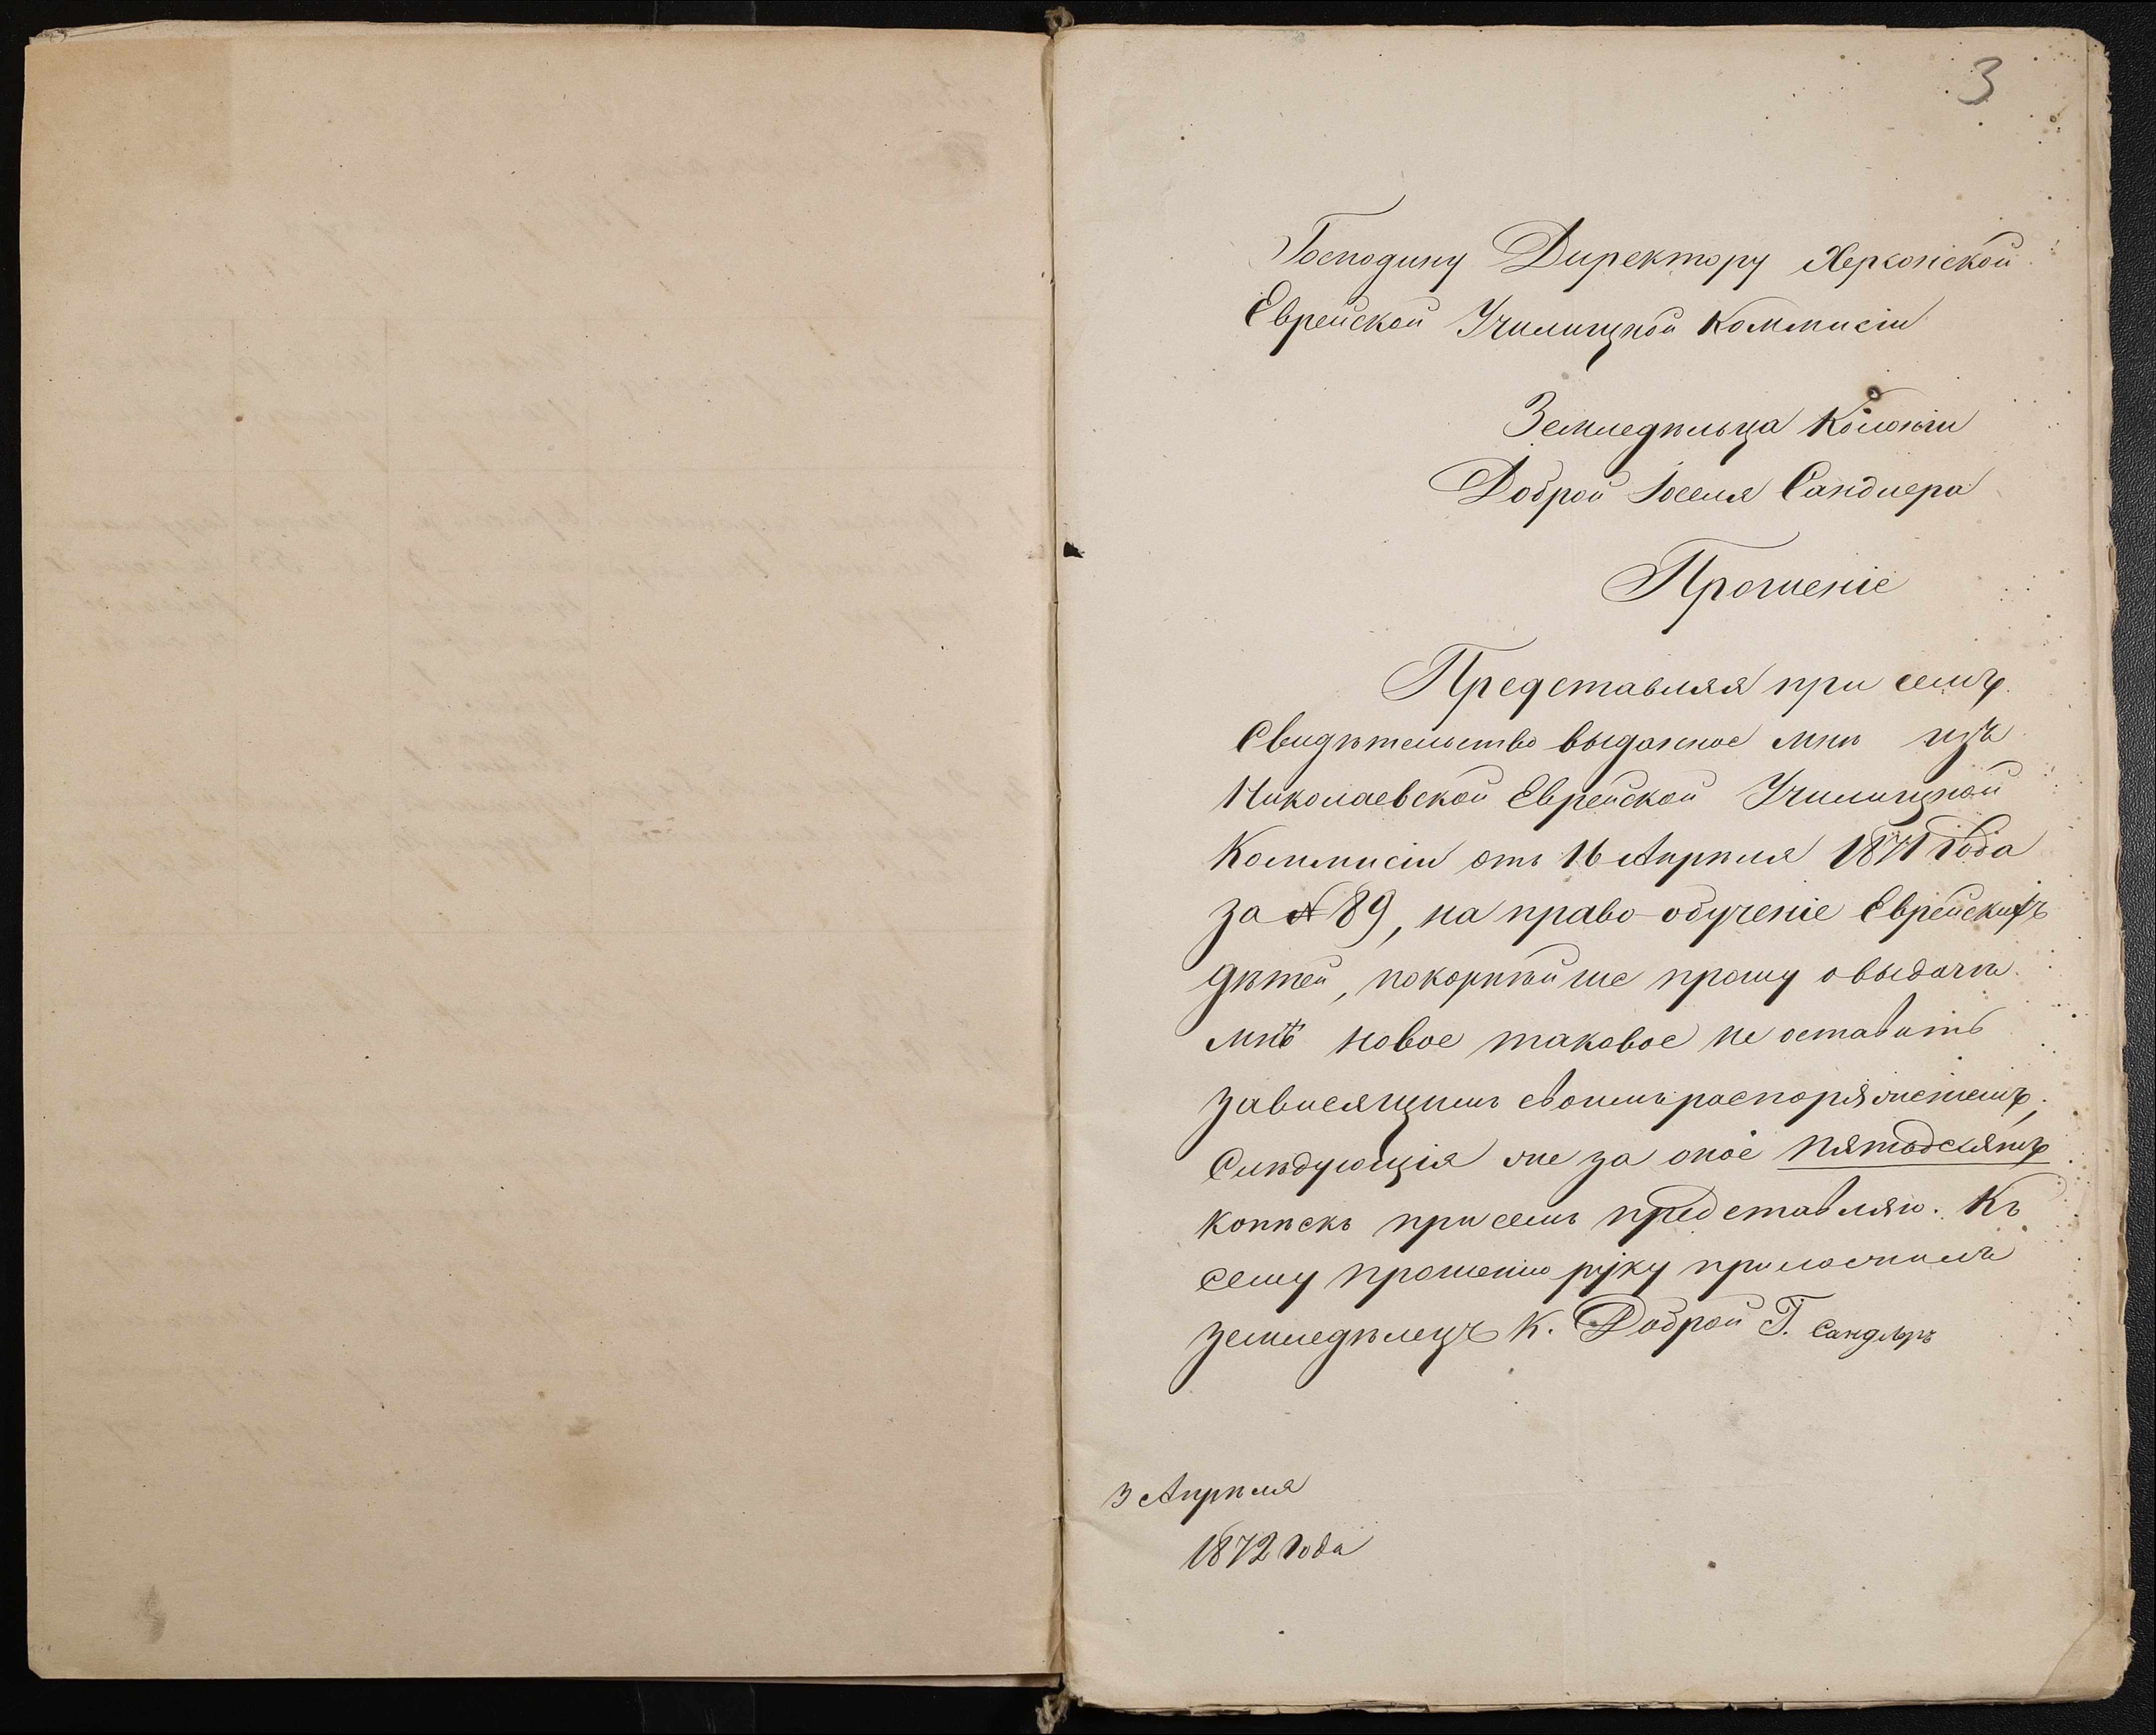 3
Господину Директору Херсонской
Еврейской Училищной Коммисіи
Земледѣльца Колоніи
Доброй Іоселя Сандлера
Прошеніе
Представляя при семъ
Свидѣтельство выданное мнѣ изъ
Николаевской Еврейской Училищной
Коммисіи отъ 16 Апрѣля 1871 года
за № 89, на право обученіе Еврейскихъ
дѣтей, покорнѣйше прошу о выдачи
мнѣ новое таковое не оставить
зависящимъ своимъ распоряженіемъ,
Слѣдующія же за оное пятьдесятъ
копѣекъ при семъ представляю. Къ
сему прошенію руку приложилъ
земледѣлецъ К. Доброй І. Сандлеръ
3 Апрѣля
1872 года